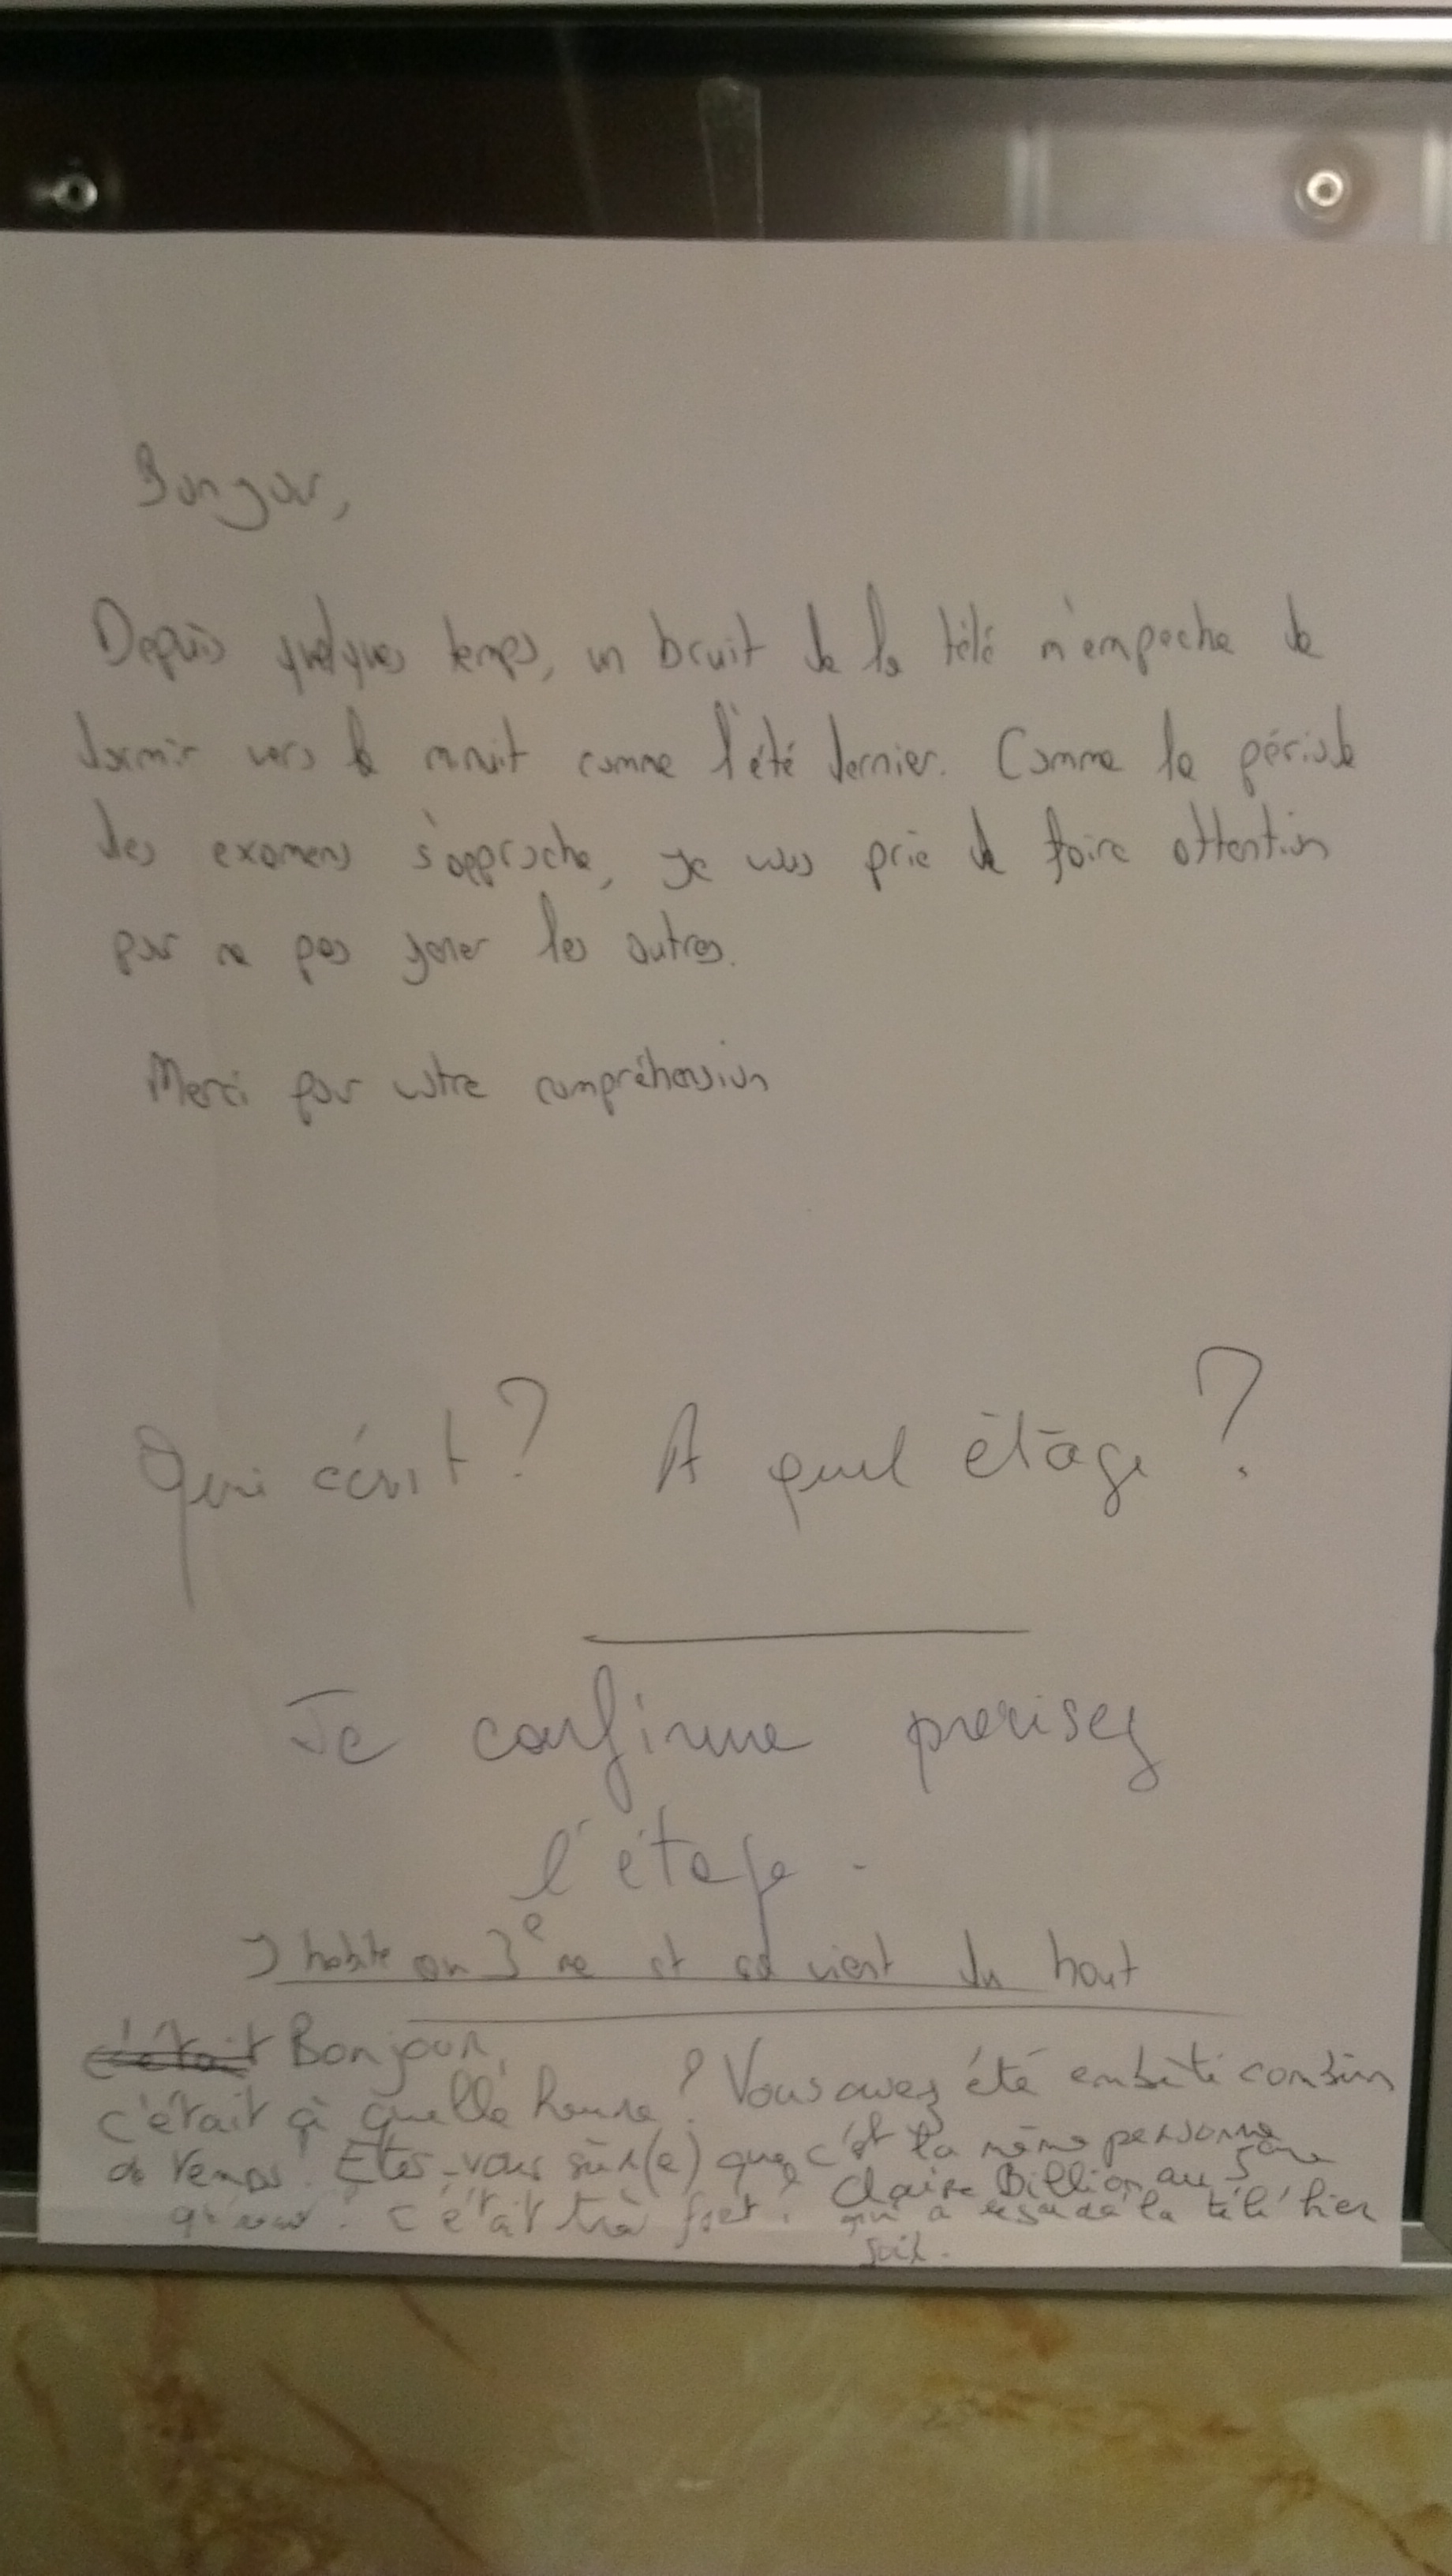 Bonjour,
Depuis quelques temps, un bruit de la télé m'empeche de
dormir vers le minuit comme l'été dernier. Comme la période
des examens s'approche, je vous prie de faire attention
pour ne pas gener les autres.
Merci pour votre compréhension
Qui écrit ? A quel étage ?
Je confirme precisez
l'étage.
J'habite au 3ème et ça vient du haut
c'était Bonjour,
c'était à quelle heure ? Vous avez été embêté combien
de temps ? Etes-vous sûr(e) que c'est la même personne
qui C'était très fort.
Claire Billion au 5ème
qui a regardé la télé hier
soir.